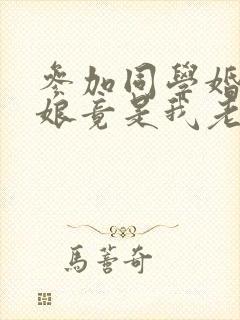 參加同學婚
娘竟是我老
馬蕾奇